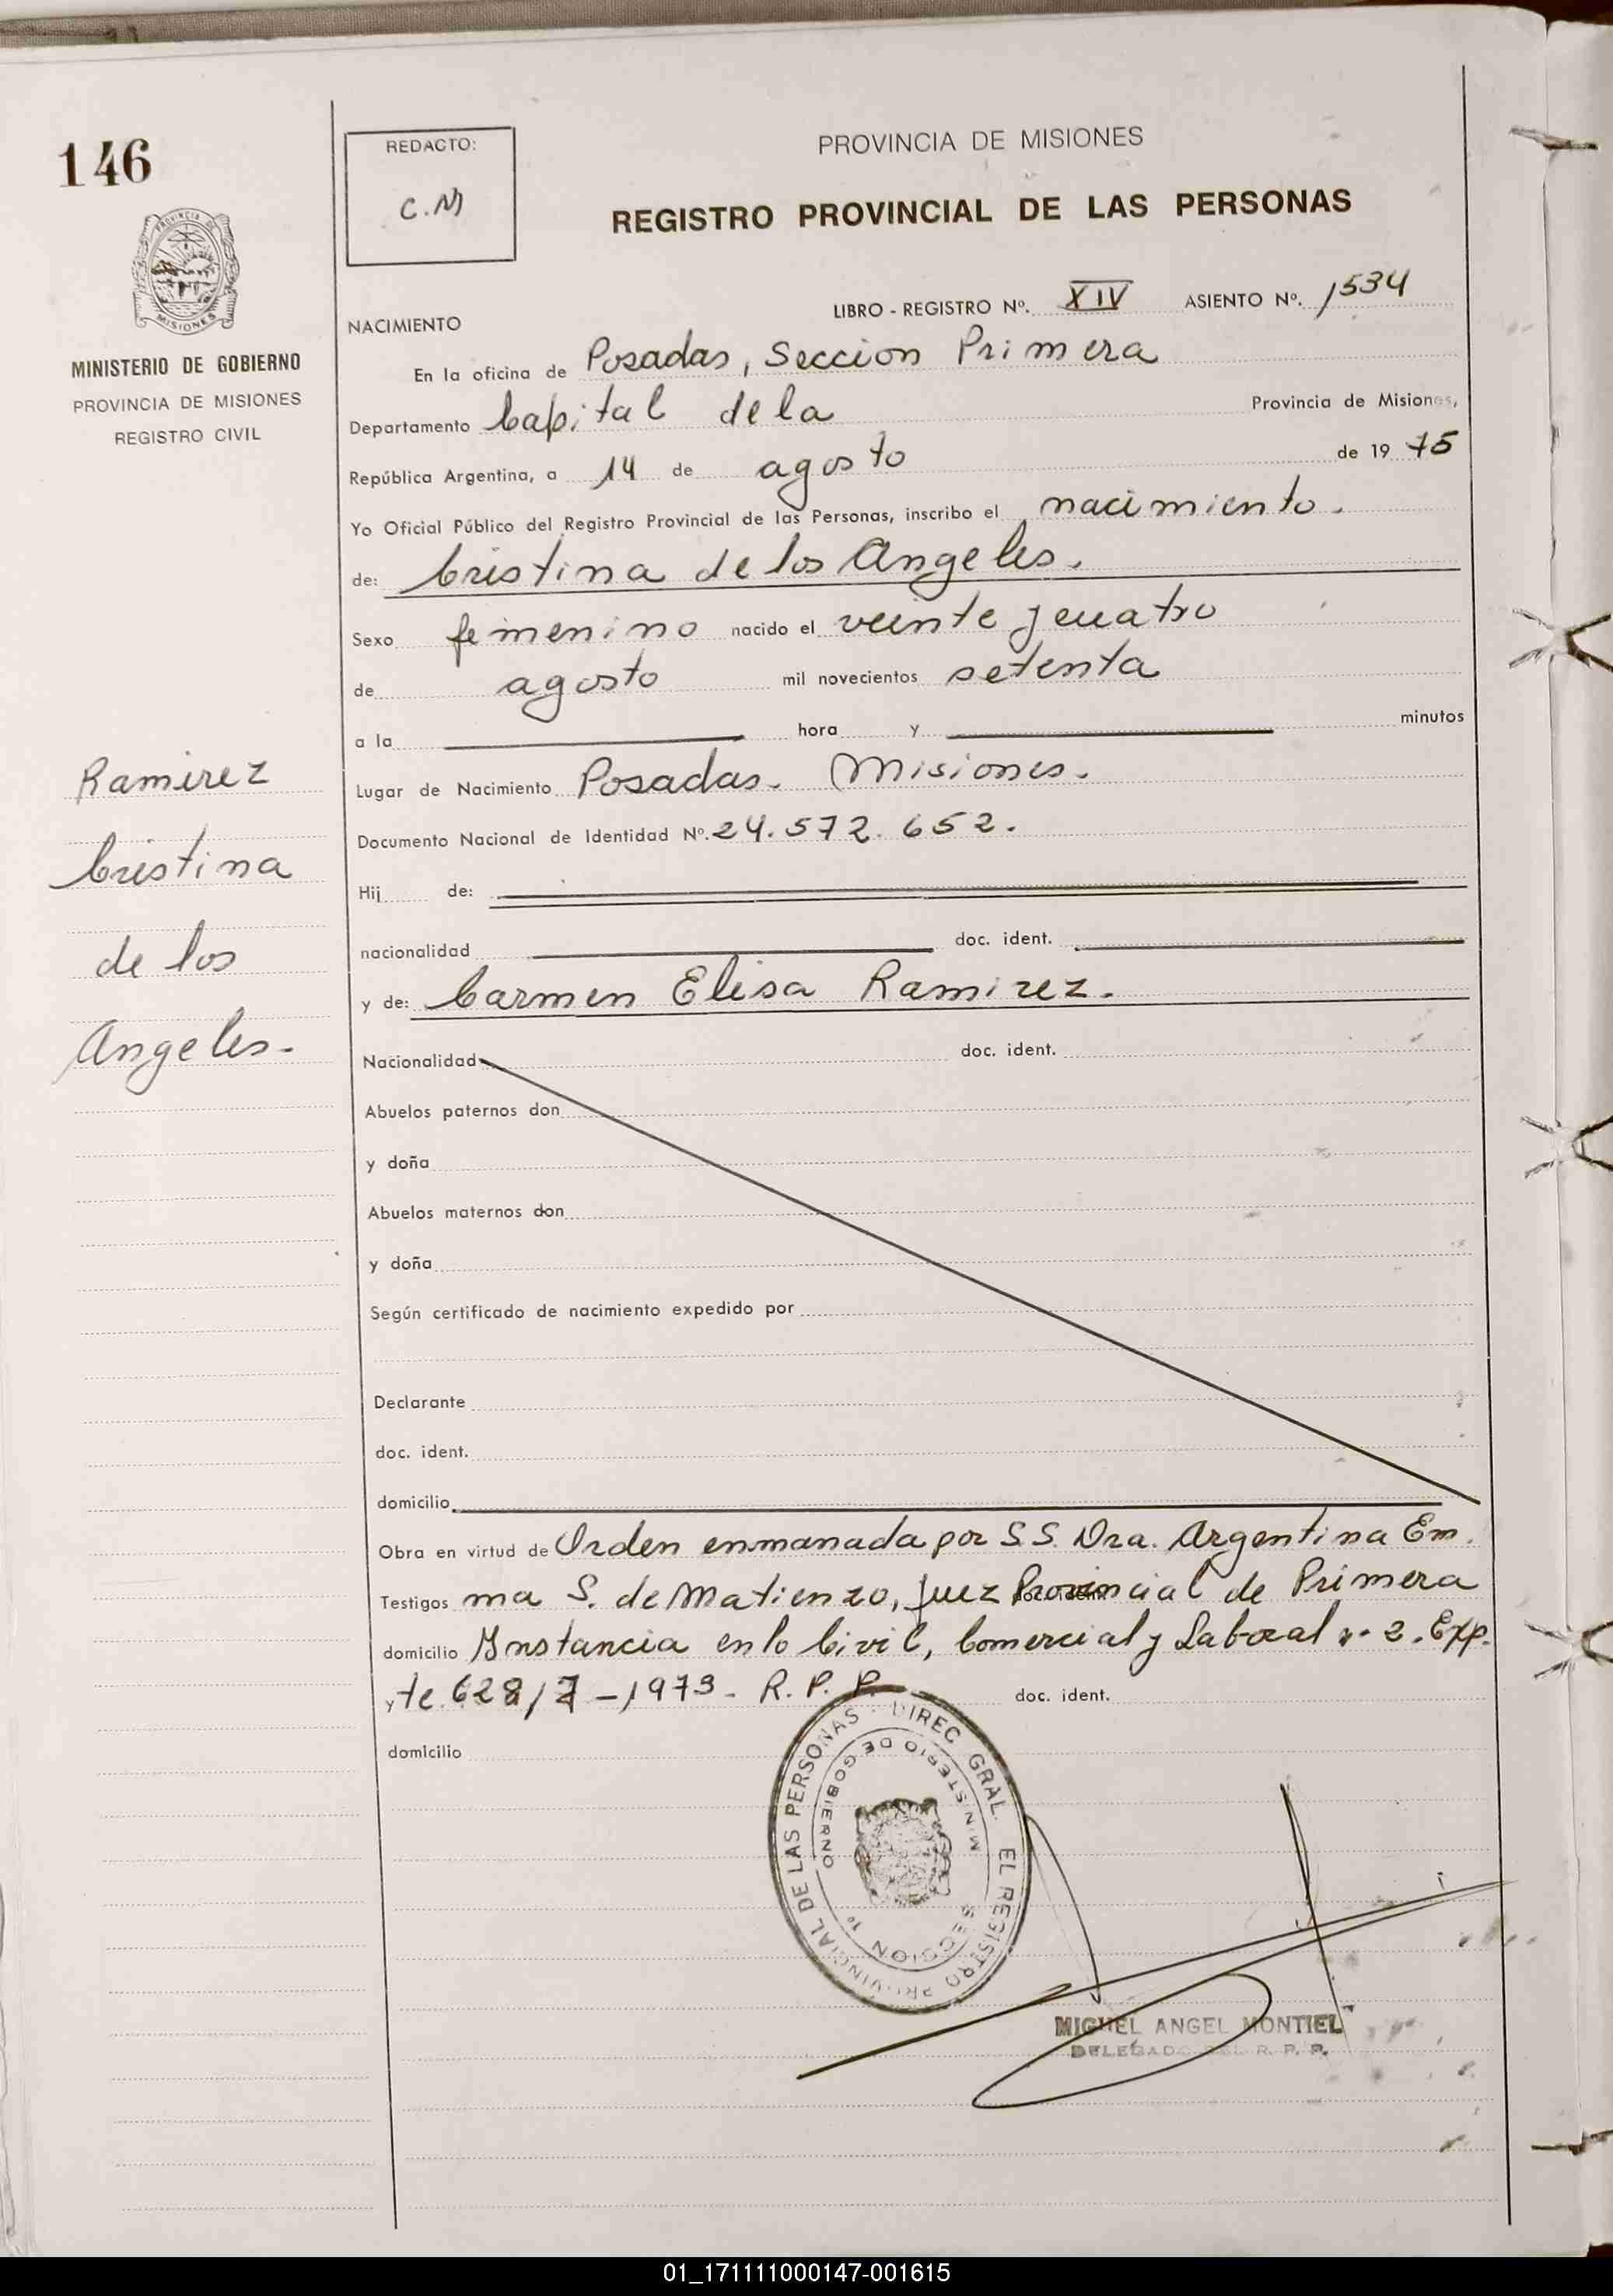 146
REDACTO:
C.M
PROVINCIA DE MISIONES
REGISTRO PROVINCIAL DE LAS PERSONAS
PROVINCIA
MISIONES
MINISTERIO DE GOBIERNO
PROVINCIA DE MISIONES
REGISTRO CIVIL
LIBRO - REGISTRO Nº. XIV ASIENTO Nº. 1534
NACIMIENTO
En la oficina de Posadas, Seccion Primera
Departamento Capital de la Provincia de Misiones,
República Argentina, a 14 de agosto de 19 75
Yo Oficial Público del Registro Provincial de las Personas, inscribo el nacimiento.
de: Cristina de los Angeles.
Sexo femenino nacido el veinte y cuatro
de agosto mil novecientos setenta
a la hora y minutos
Lugar de Nacimiento Posadas. Misiones.
Documento Nacional de Identidad Nº. 24.572.652.
Hij de:
nacionalidad doc. ident.
y de: Carmen Elisa Ramirez.
Ramirez
Cristina
de los
Angeles.-
Nacionalidad doc. ident.
Abuelos paternos don
y doña
Abuelos maternos don
y doña
Según certificado de nacimiento expedido por
Declarante
doc. ident.
domicilio
Obra en virtud de Orden enmanada por S.S. Dra. Argentina Em.
Testigos ma S. de Matienzo, Juez Provincial de Primera
domicilio Instancia en lo Civil, Comercial y Laboral nº 2. Exp.
y te. 628/7-1973- R.P.P. doc. ident.
domicilio
DIREC. GRAL. EL REGISTRO PROVINCIAL DE LAS PERSONAS
MINISTERIO DE GOBIERNO
SECCION 1º
MIGUEL ANGEL MONTIEL
DELEGADO DEL R. P. P.
01_171111000147-001615